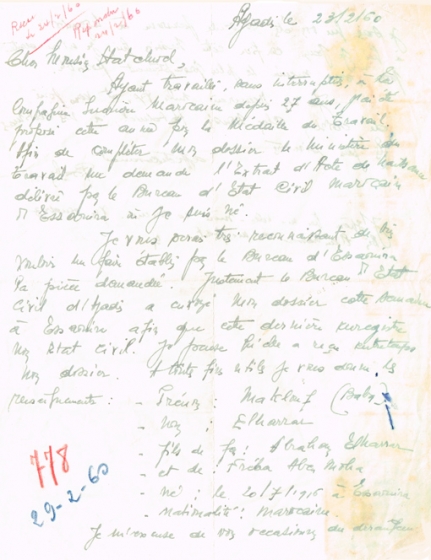 Agadir le 23/2/60
Reçu le 24/2/60
Répondu 24/2/60
Cher Monsieur
Ayant travaillé, sans interruption, à la
Compagnie Marocaine depuis 27 ans, j'ai été
proposé cette année pour la Médaille du Travail.
Afin de compléter mon dossier le Ministère du
travail me demande l'Extrait d'Acte de naissance
délivré par le Bureau d'Etat Civil marocain
d'Essaouira où je suis né.
Je vous serais très reconnaissant de bien
vouloir me faire établir par le Bureau d'Essaouira
la pièce demandée. Justement le Bureau d'Etat
Civil d'Agadir a envoyé mon dossier cette semaine
à Essaouira afin que cette dernière enregistre
mon Etat Civil. Je pense a reçu entretemps
mon dossier. A toutes fins utiles je vous donne les
renseignements : - Prénom : Makhlouf
- Nom : Elharrar
- fils de feu : Abraham Elharrar
- et de : Friha
- né : le 20/7/1916 à Essaouira
- nationalité : Marocaine.
Je m'excuse de vous occasionner du dérangement
778
29-2-60